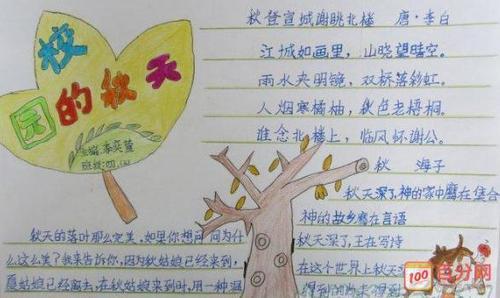 校园的秋天
班级:四、
秋登宣城谢眺北楼 唐·李白
江城如画里，山晓望晴空。
雨水夹明镜，双桥落彩虹。
人烟寒橘柚，秋色老梧桐。
谁念北楼上，临风怀谢公。
秋 海子
秋天深了，神的家中鹰在集合
神的故乡鹰在言语
秋天深了，王在写诗
在这个世界上秋天深
得到的尚未得到
秋天的落叶那么完美，如果你想问问为什
么这么美？我来告诉你，因为秋姑娘已经来到，
夏姑娘已经离去，在秋姑娘来到时，用一种温
100
百分网